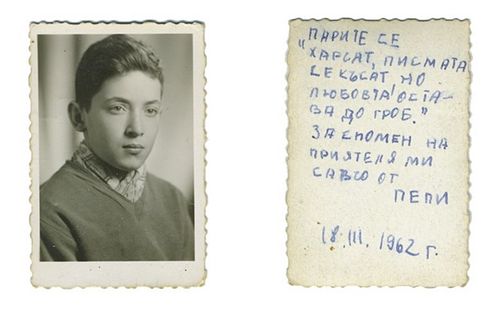 „ПАРИТЕ СЕ
ХАРЧАТ, ПИСМАТА
СЕ КЪСАТ НО
ЛЮБОВТА ОСТА-
ВА ДО ГРОБ."
ЗА СПОМЕН НА
ПРИЯТЕЛЯ МИ
САВЧО ОТ
ПЕПИ
18.III.1962 г.